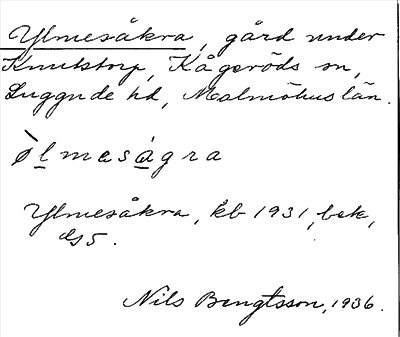 Ylmesåkra, gård under
Knutstorp, Kågeröds sn,
Luggude hd, Malmöhus län.
ø̀lmeságra
Ylmesåkra, kb 1931, bek,
GS5.
Nils Bengtsson, 1936.